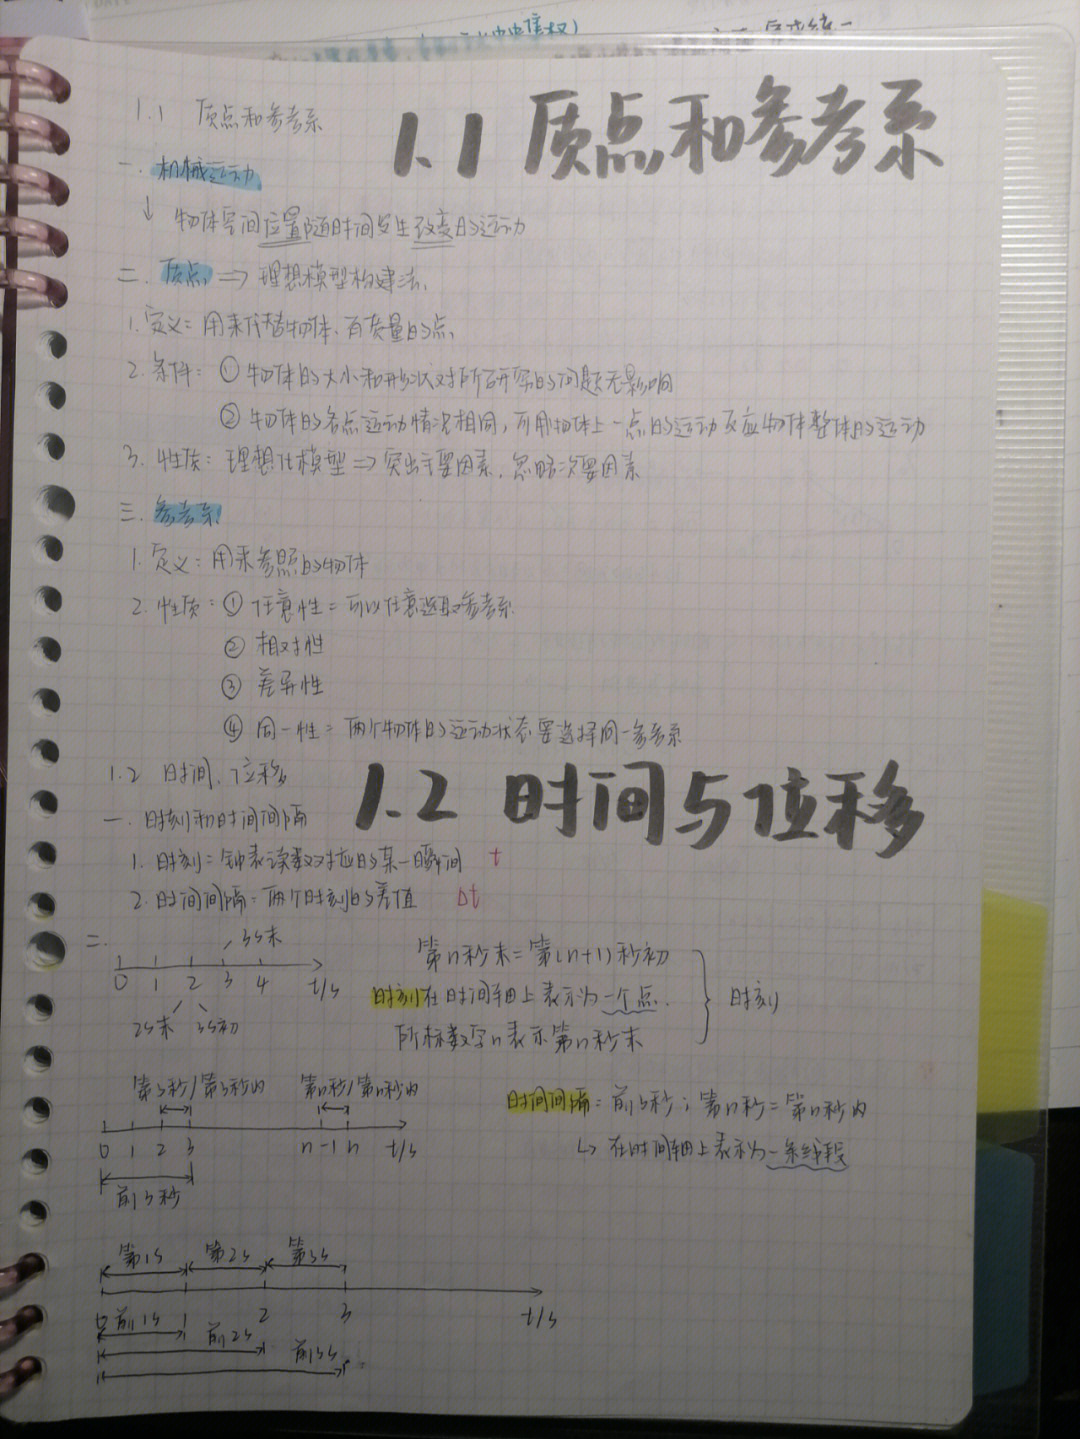 1.1 质点和参考系
1.1 质点和参考系
一. 机械运动
↓ 物体空间位置随时间发生改变的运动
二. 质点 ⇒ 理想模型构建法.
1. 定义: 用来代替物体、有质量的点
2. 条件: ① 物体的大小和形状对所研究的问题无影响
② 物体的各点运动情况相同, 可用物体上一点的运动反应物体整体的运动
3. 性质: 理想化模型 ⇒ 突出主要因素, 忽略次要因素
三. 参考系
1. 定义: 用来参照的物体
2. 性质: ① 任意性: 可以任意选取参考系
② 相对性
③ 差异性
④ 同一性: 两个物体的运动状态要选择同一参考系
1.2 时间、位移
1.2 时间与位移
一. 时刻和时间间隔
1. 时刻: 钟表读数对应的某一瞬间 t
2. 时间间隔: 两个时刻的差值 Δt
二.
3s末
0 1 2 3 4 t/s
2s末 3s初
第n秒末=第(n+1)秒初
时刻在时间轴上表示为一个点.
所标数字n表示第n秒末
时刻
第3秒/第3秒内 第n秒/第n秒内
0 1 2 3 n-1 n t/s
前3秒
时间间隔: 前3秒; 第n秒=第n秒内
↳ 在时间轴上表示为一条线段
第1s 第2s 第3s
0 1 2 3 t/s
前1s
前2s
前3s